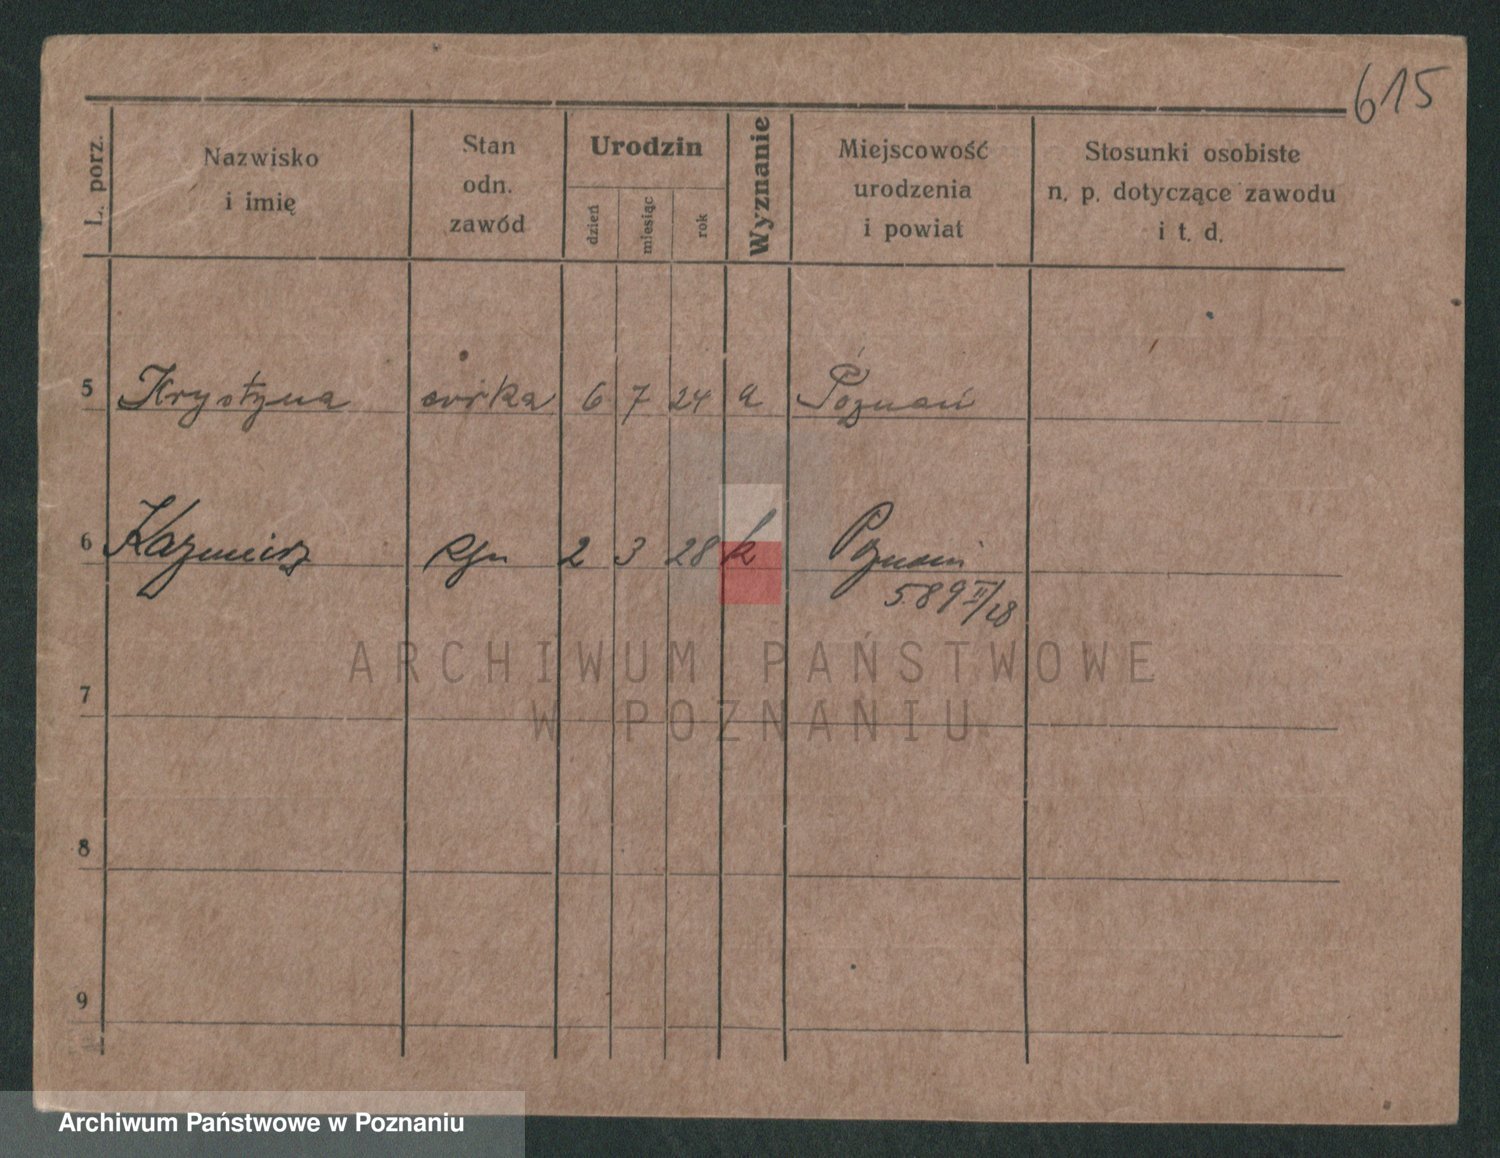 615
L. porz.
Nazwisko
i imię
Stan
odn.
zawód
Urodzin
dzień
miesiąc
rok
Wyznanie
Miejscowość
urodzenia
i powiat
Stosunki osobiste
n. p. dotyczące zawodu
i t. d.
5 Krystyna córka 6 7 24 Poznań
6 Kazimierz syn 2 3 28 k Poznań
589 II/28
ARCHIWUM PAŃSTWOWE
W POZNANIU
7
8
9
Archiwum Państwowe w Poznaniu